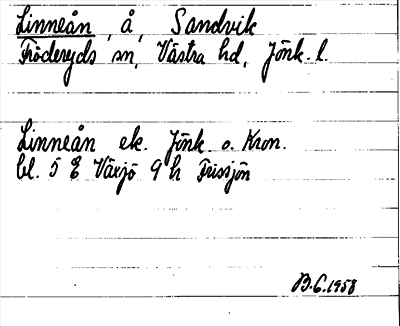 Linneån, å, Sandvik
Fröderyds sn, Västra hd, Jönk. l.
Linneån ek. Jönk. o. Kron.
bl. 5 E Växjö 9 h Frissjön
B.C. 1958